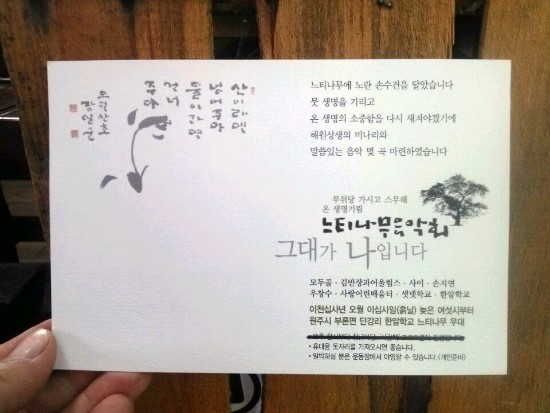 산이라면
넘어주마
물이라면
건너
주마
오월산호
장일순
느티나무에 노란 손수건을 달았습니다
뭇 생명을 기리고
온 생명의 소중함을 다시 새겨야겠기에
해원상생의 비나리와
말씀있는 음악 몇 곡 마련하였습니다
무위당 가시고 스무해
온 생명기림
느티나무음악회
그대가 나입니다
모두골 · 김반장과어울림스 · 사이 · 손지연
우창수 · 사랑어린배움터 · 셋넷학교 · 한알학교
이천십사년 오월 이십사일(흙날) 늦은 여섯시부터
원주시 부론면 단강리 한알학교 느티나무 무대
• 휴대용 돗자리를 가져오시면 좋습니다.
• 일박하실 분은 운동장에서 야영할 수 있습니다.(개인준비)